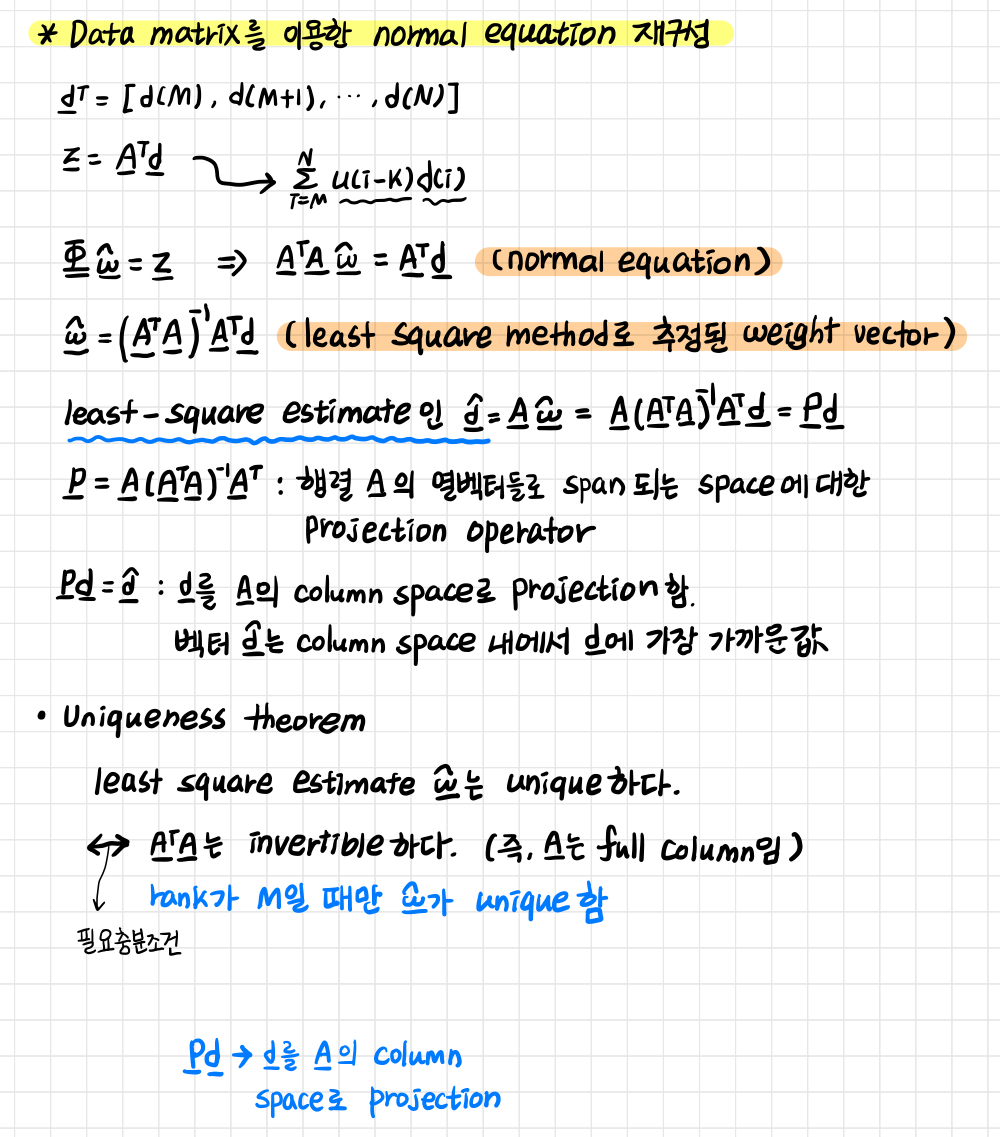 * Data matrix를 이용한 normal equation 재구성
d^T = [d(M), d(M+1), ⋯, d(N)]
z = A^T d → Σ_{i=M}^{N} u(i-k)d(i)
Φ ŵ = z ⇒ A^T A ŵ = A^T d (normal equation)
ŵ = (A^T A)^{-1} A^T d (least square method로 추정된 weight vector)
least-square estimate 인 d̂ = A ŵ = A(A^T A)^{-1} A^T d = Pd
P = A(A^T A)^{-1} A^T : 행렬 A의 열벡터들로 span 되는 space에 대한
projection operator
Pd = d̂ : d를 A의 column space로 projection함.
벡터 d̂는 column space 내에서 d에 가장 가까운 값
• Uniqueness theorem
least square estimate ŵ는 unique하다.
↔ A^T A는 invertible하다. (즉, A는 full column임)
rank가 M일 때만 ŵ가 unique함
필요충분조건
Pd → d를 A의 column
space로 projection